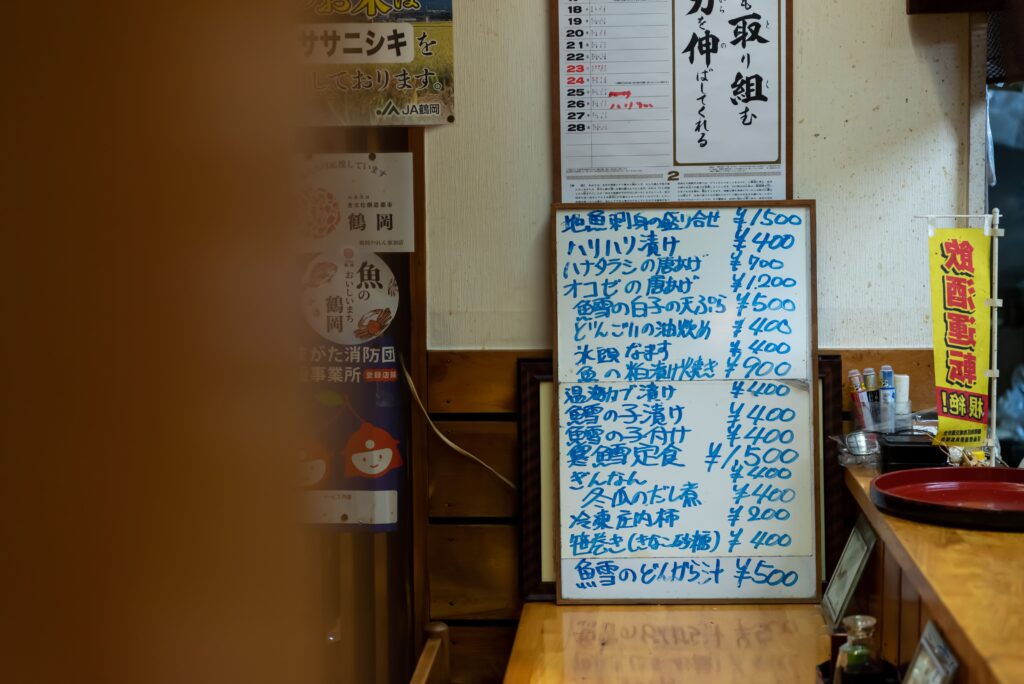 お米は
ササニシキを
しております。
JA鶴岡
応援しています
食文化創造都市
鶴岡
魚の
おいしいまち
鶴岡
がた消防団
事業所
登録店舗
18
19
20
21
22
23
24
25
26
27
28
2
取り組む
力を伸ばしてくれる
地魚刺身の盛り合せ ¥1500
ハリハリ漬け ¥400
ハナタラシの唐あげ ¥700
オコゼの唐あげ ¥1,200
鱈の白子の天ぷら ¥500
どんごいの油炒め ¥400
氷頭なます ¥400
魚の粕漬け焼き ¥900
温海カブ漬け ¥400
鱈の子漬け ¥400
鱈の子付け ¥400
寒鱈定食 ¥1,500
ぎんなん ¥400
冬瓜のだし煮 ¥400
冷凍庄内柿 ¥200
笹巻き(きなこ砂糖) ¥400
鱈のどんがら汁 ¥500
飲酒運転
根絶!